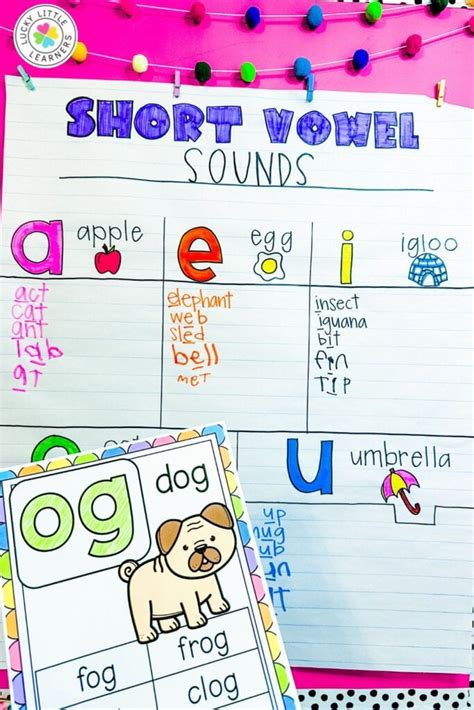 LUCKY LITTLE LEARNERS
SHORT VOWEL
SOUNDS
a apple
e egg
i igloo
act
cat
ant
lab
at
elephant
web
sled
bell
met
insect
iguana
bit
fin
Tip
u umbrella
up
og
dog
fog
frog
clog